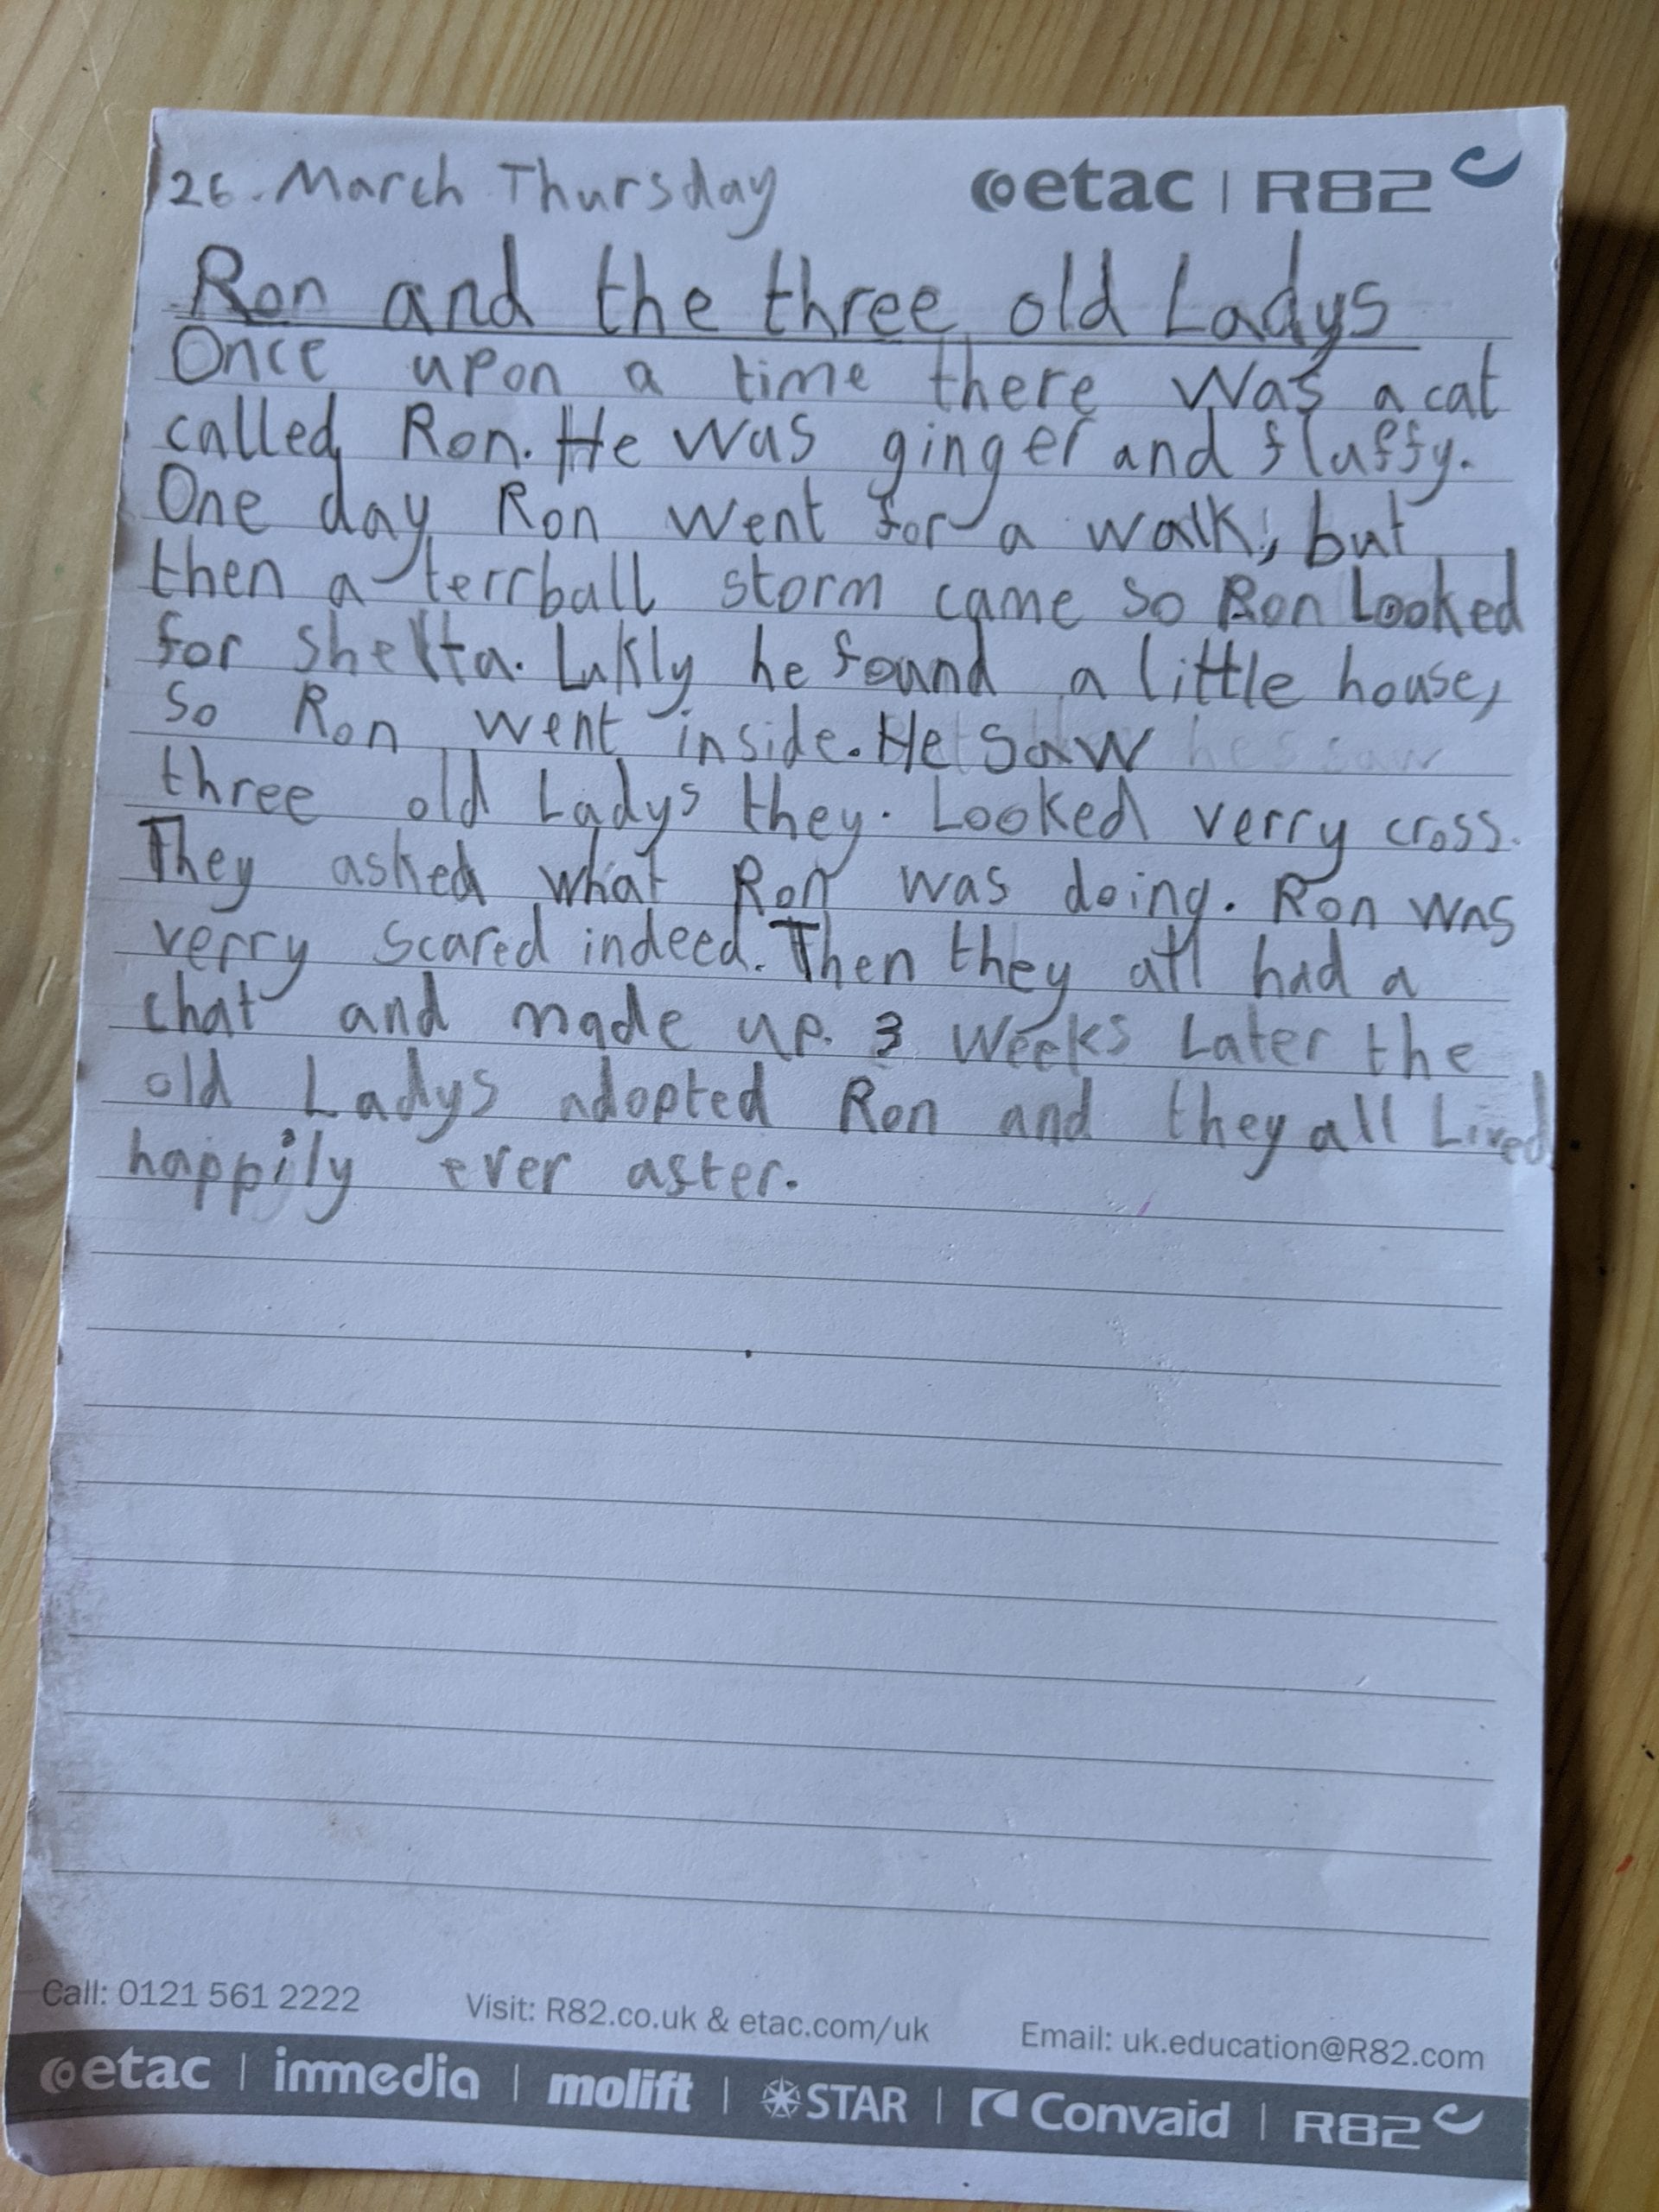 26. March Thursday
etac | R82
Ron and the three old Ladys
Once upon a time there was a cat
called Ron. He was ginger and fluffy.
One day Ron went for a walk, but
then a terrball storm came so Ron Looked
for shelta. Lukly he found a little house,
so Ron went inside. He saw
three old Ladys they. Looked verry cross.
They asked what Ron was doing. Ron was
verry scared indeed. Then they all had a
chat and made up. 3 weeks Later the
old Ladys adopted Ron and they all Lived
happily ever after.
Call: 0121 561 2222 Visit: R82.co.uk & etac.com/uk Email: uk.education@R82.com
etac | immedia | molift | STAR | Convaid | R82